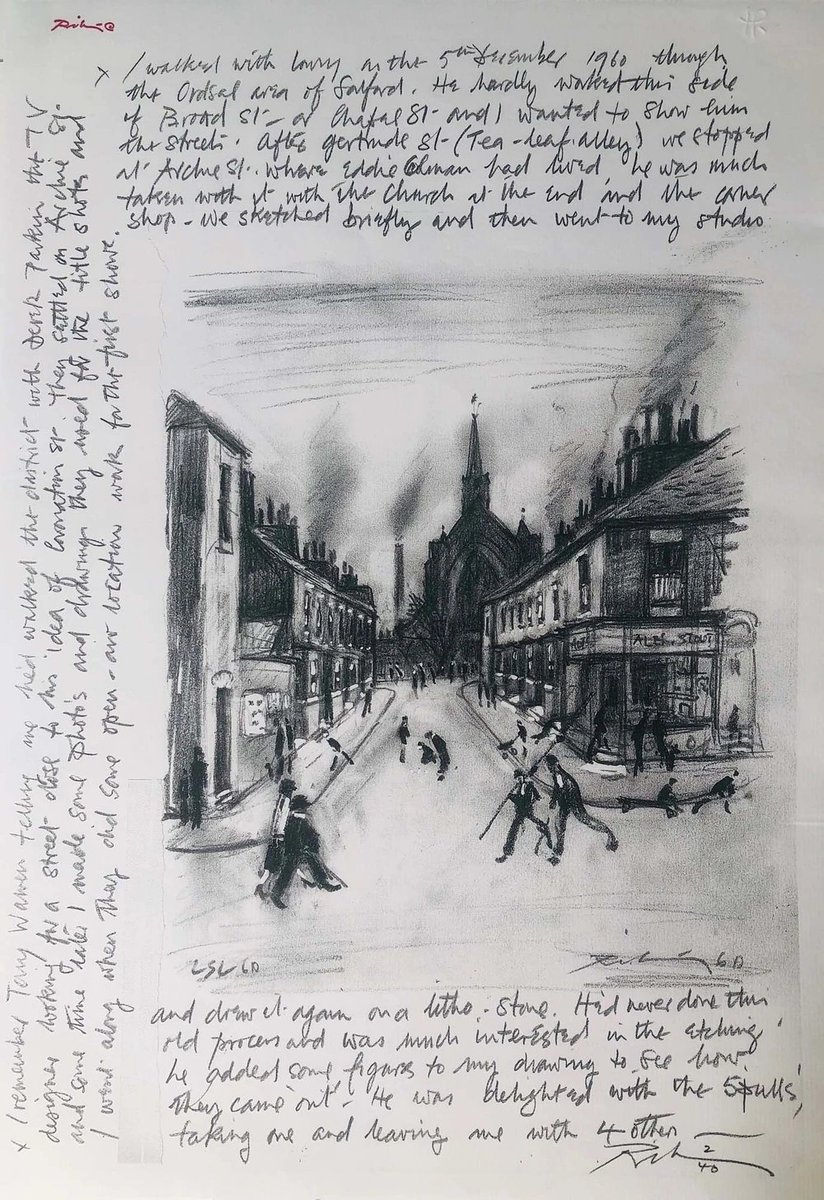 x I walked with lowry on the 5th december 1960 through
the Ordsal area of Salford. He hardly walked this side
of Broad St – or Chapel St – and I wanted to show him
the streets. After gertrude St – (Tea-leaf alley) we stopped
at Archie St. where Eddie Colman had lived, he was much
taken with it with the Church at the end and the corner
shop – we sketched briefly and then went to my studio
ALE. STOUT
LSL 60
60
and drew it again on a litho-stone. He'd never done this
old process and was much interested in the etching
he added some figures to my drawing to see how
they came 'out' – He was delighted with the 5 'pulls',
taking one and leaving me with 4 other –
2/40
x I remember Tony Warren telling me he'd walked the district with Derek the TV
designer looking for a street close to his idea of Coronation St. They settled on Archie St.
and some time later I made some photo's and drawings they used for the title shots and
I went along when they did some open-air location work for the first show.